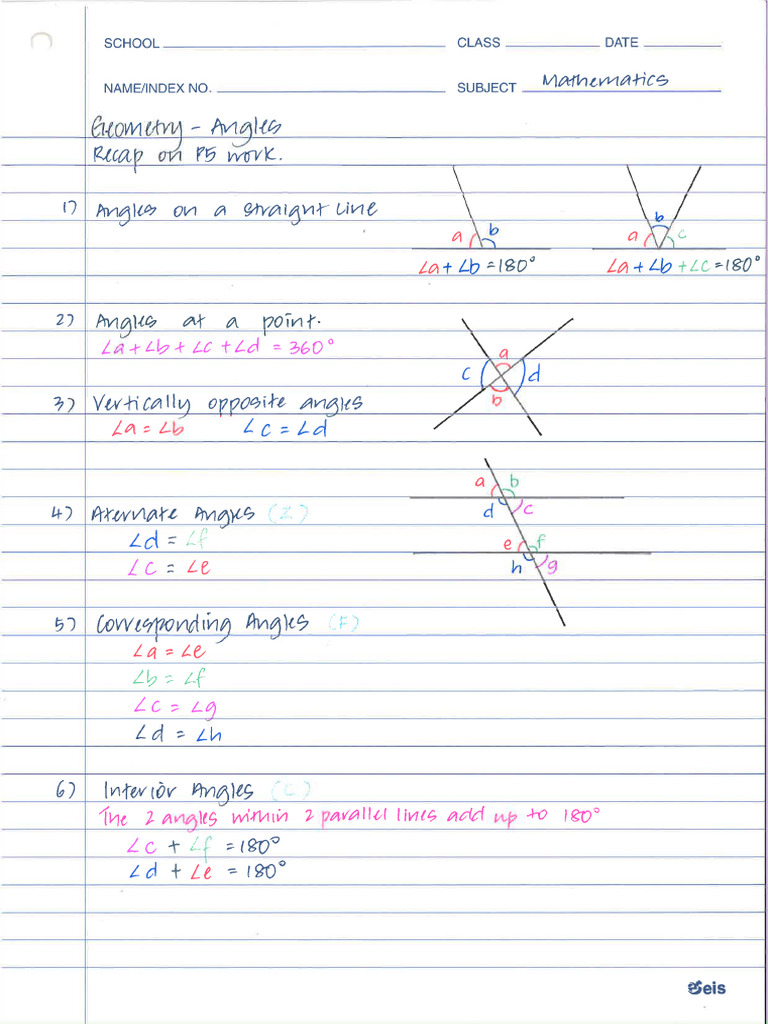 SCHOOL CLASS DATE
NAME/INDEX NO. SUBJECT Mathematics
Geometry - Angles
Recap on P5 work.
1) Angles on a straight line
a b
∠a + ∠b = 180°
a b c
∠a + ∠b + ∠c = 180°
2) Angles at a point.
∠a + ∠b + ∠c + ∠d = 360°
a
c d
b
3) Vertically opposite angles
∠a = ∠b ∠c = ∠d
a b
d c
e f
h g
4) Aternate Angles (Z)
∠d = ∠f
∠c = ∠e
5) Corresponding Angles (F)
∠a = ∠e
∠b = ∠f
∠c = ∠g
∠d = ∠h
6) Interior Angles (C)
The 2 angles within 2 parallel lines add up to 180°
∠c + ∠f = 180°
∠d + ∠e = 180°
eis